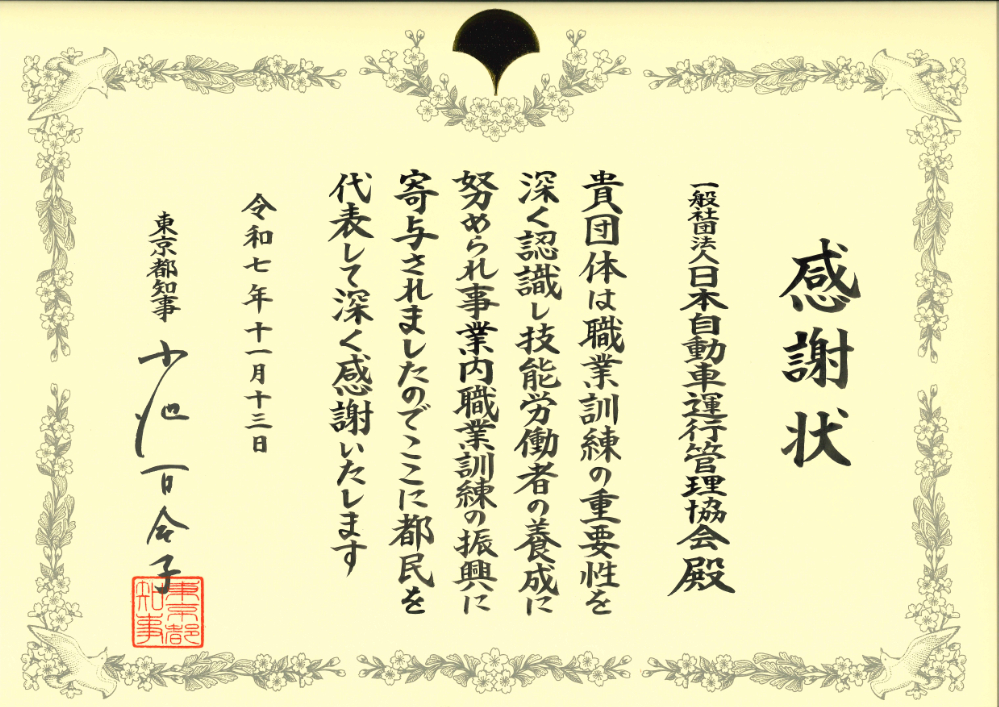 感謝状
一般社団法人日本自動車運行管理協会殿
貴団体は職業訓練の重要性を
深く認識し技能労働者の養成に
努められ事業内職業訓練の振興に
寄与されましたのでここに都民を
代表して深く感謝いたします
令和七年十一月十三日
東京都知事 小池百合子
東京都知事